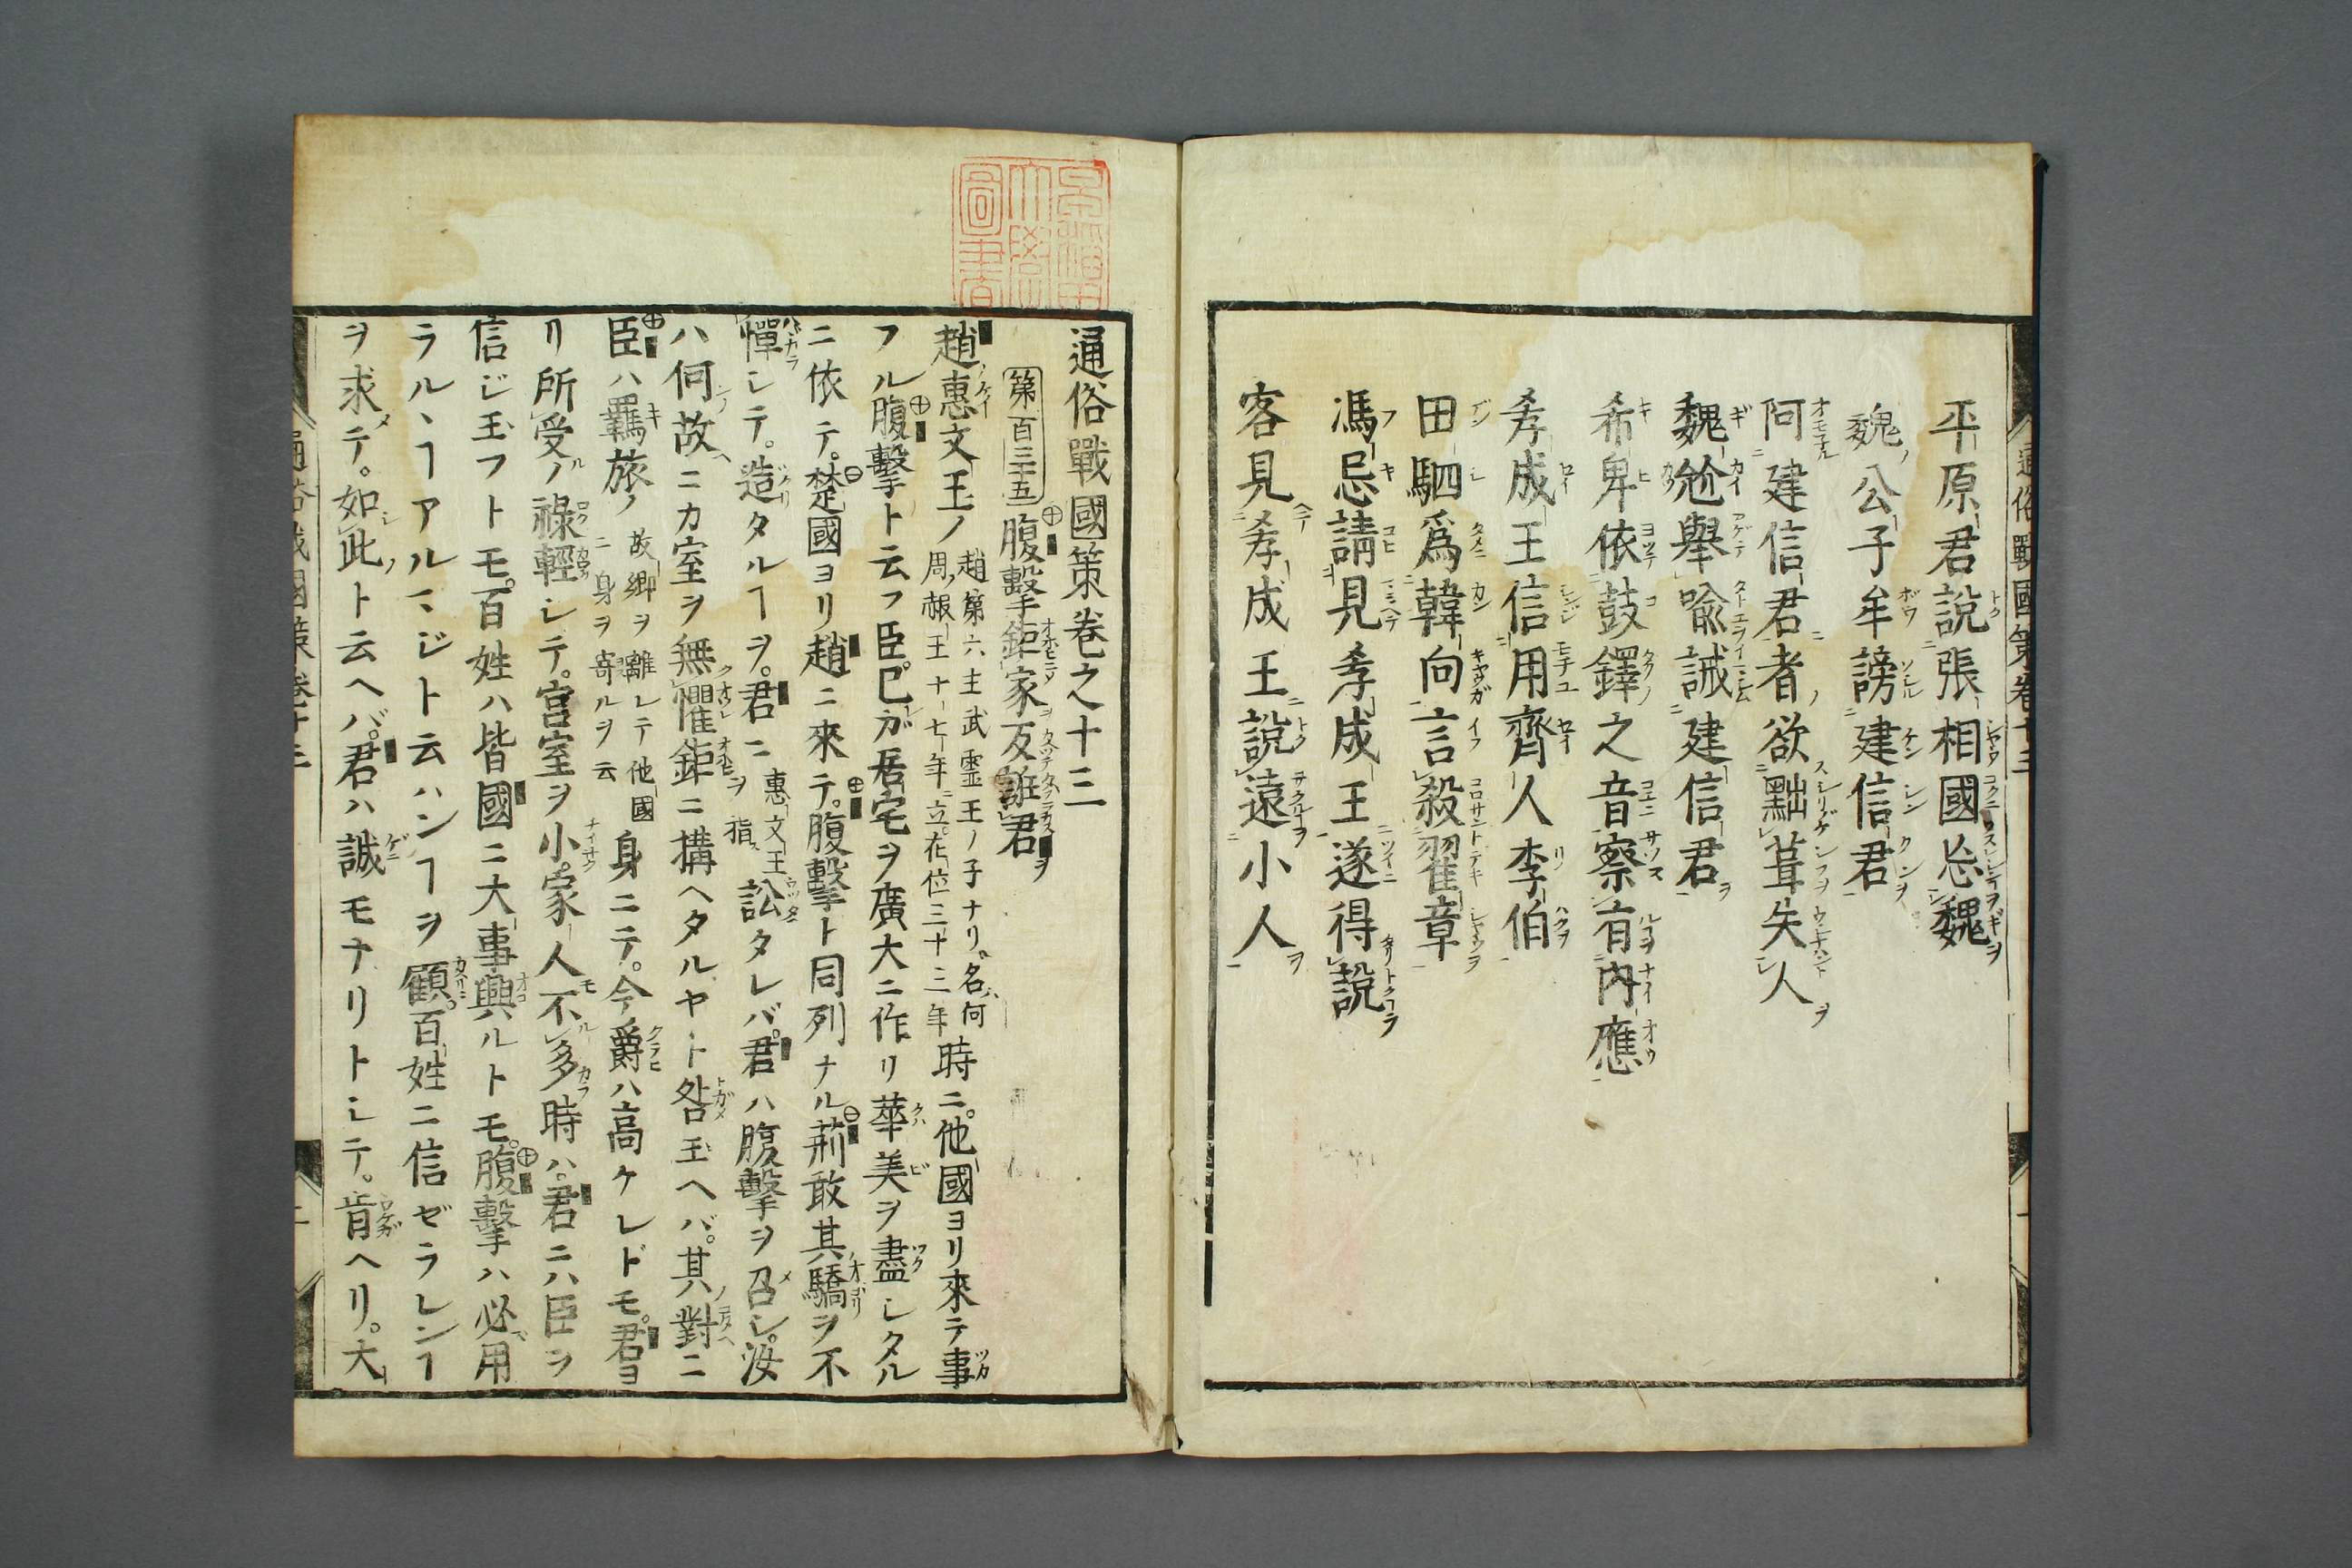 通俗戰國策卷十三
平原君說張相國忘魏
魏公子牟謗建信君
阿建信君者欲黜葺失人
魏尬舉喩誡建信君
希卑依鼓鐸之音察有內應
孝成王信用齊人李伯
田駟爲韓向言殺翟章
馮忌請見孝成王遂得說
客見孝成王說遠小人
通俗戰國策卷之十三
第百三十五 腹擊鉅家反誑君
趙惠文王ノ 趙第六主武霊王ノ子ナリ名何周ノ赧王十七年ニ立在位三十三年 時ニ他國ヨリ來テ事
フル腹擊ト云フ臣已ガ居宅ヲ廣大ニ作リ華美ヲ盡シタル
ニ依テ楚國ヨリ趙ニ來テ腹擊ト同列ナル荊敢其驕ヲ不
憚シテ造タルヿヲ君ニ 惠文王ヲ指ス 訟タレバ君ハ腹擊ヲ召シ汝
ハ何故ニカ室ヲ無懼鉅ニ搆ヘタルヤト咎玉ヘバ其對ニ
臣ハ羈旅ノ 故鄉ヲ離レテ他國ニ身ヲ寄ルヲ云 身ニテ今ノ爵ハ高ケレドモ君ヨ
リ所受ノ祿輕シテ宮室ヲ小家人不多時ハ君ニハ臣ヲ
信ジ玉フトモ百姓ハ皆國ニ大事興ルトモ腹擊ハ必用
ラルヽヿアルマジト云ハンヿヲ顧百姓ニ信ゼラレンヿ
ヲ求テ如此ト云ヘバ君ハ誠モナリトシテ肯ヘリ大
通俗戰國策卷十三